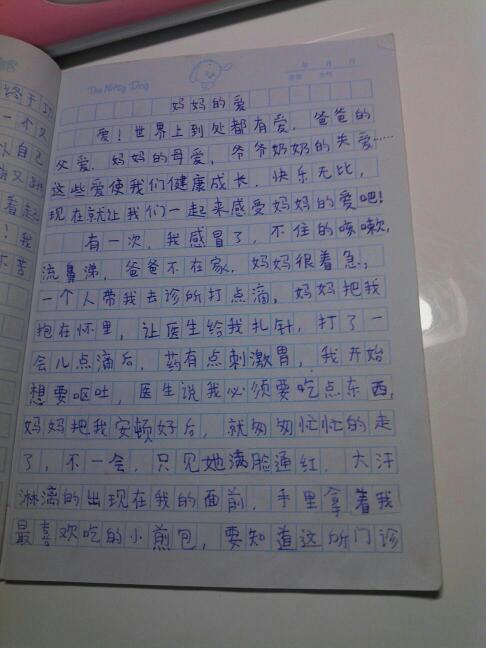 The Nitsy Dog
年 月 日
妈妈的爱
爱！世界上到处都有爱，爸爸的
父爱，妈妈的母爱，爷爷奶奶的关爱……
这些爱使我们健康成长，快乐无比，
现在就让我们一起来感受妈妈的爱吧！
有一次，我感冒了，不住的咳嗽，
流鼻涕，爸爸不在家，妈妈很着急，
一个人带我去诊所打点滴，妈妈把我
抱在怀里，让医生给我扎针，打了一
会儿点滴后，药有点刺激胃，我开始
想要呕吐，医生说我必须要吃点东西，
妈妈把我安顿好后，就匆匆忙忙的走
了，不一会，只见她满脸通红，大汗
淋漓的出现在我的面前，手里拿着我
最喜欢吃的小煎包，要知道这所门诊